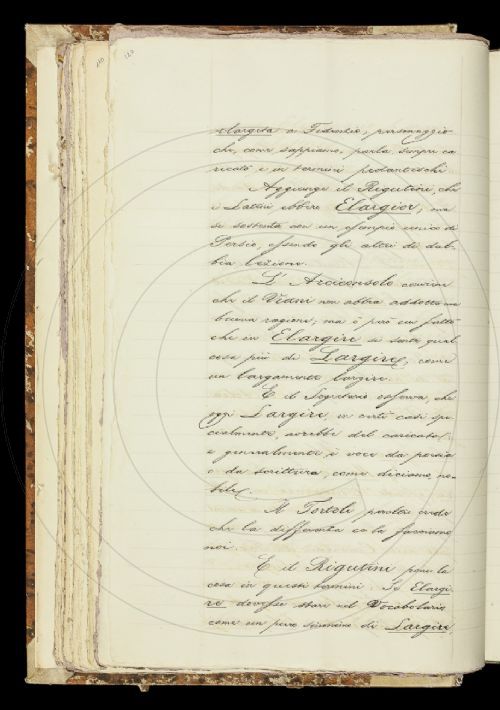 120
elargita a Fidenzio, personaggio
che, come sappiamo, parla sempre ca
ricato e in termini pedanteschi.
Aggiunge il Rigutini, che
i Latini ebbero Elargior, ma
si sostenta con un esempio unico di
Persio, essendo gli altri di dub-
bia lezione.
L'Arciconsolo conviene
che il Viani non abbia addotto una
buona ragione; ma è però un fatto
che in Elargire si sente qual
cosa più di Largire, come
un largamente largire.
E il Segretario osserva, che
oggi Largire, in certi casi spe
cialmente, sarebbe del caricato;
e generalmente è voce da poesia
o da scrittura, come diciamo, no-
bile.
Il Tortoli però crede
che la differenza ce la facciamo
noi.
E il Rigutini pone la
cosa in questi termini. Se Elargi
re dovesse stare nel Vocabolario
come un puro sinonimo di Largire,